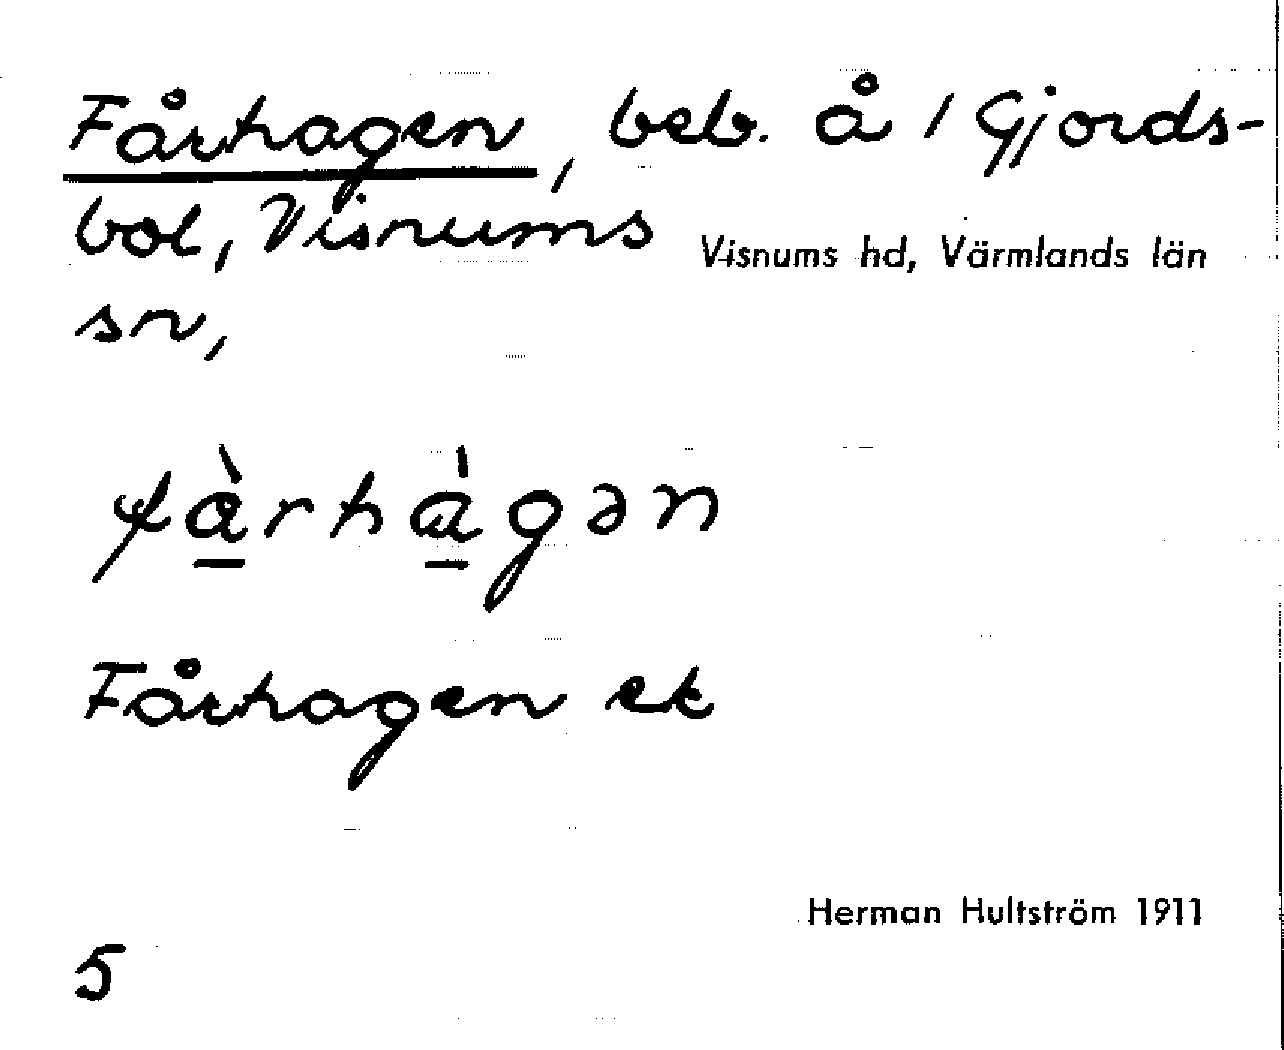 Fårhagen, beb. å 1 Gjords-
bol, Visnums Visnums hd, Värmlands län
sn,
fàrhàgən
Fårhagen ek
Herman Hultström 1911
5